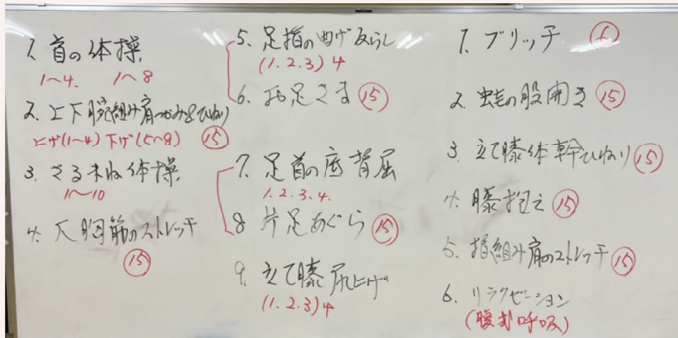 1. 首の体操
1〜4. 1〜8
2. 上下腕組み肩つかみ&ひねり
上げ(1〜4) 下げ(5〜8) 15
3. さるまね体操
1〜10
4. 大胸筋のストレッチ
15
5. 足指の曲げ反らし
(1.2.3)4
6. お足さま 15
7. 足首の底背屈
1.2.3.4.
8 片足あぐら 15
9. 立て膝尻上げ
(1.2.3)4
1. ブリッヂ 6
2. 蛙の股開き 15
3. 立て膝体幹ひねり 15
4. 膝抱え 15
5. 指組み肩のストレッチ 15
6. リラクゼーション
(腹式呼吸)